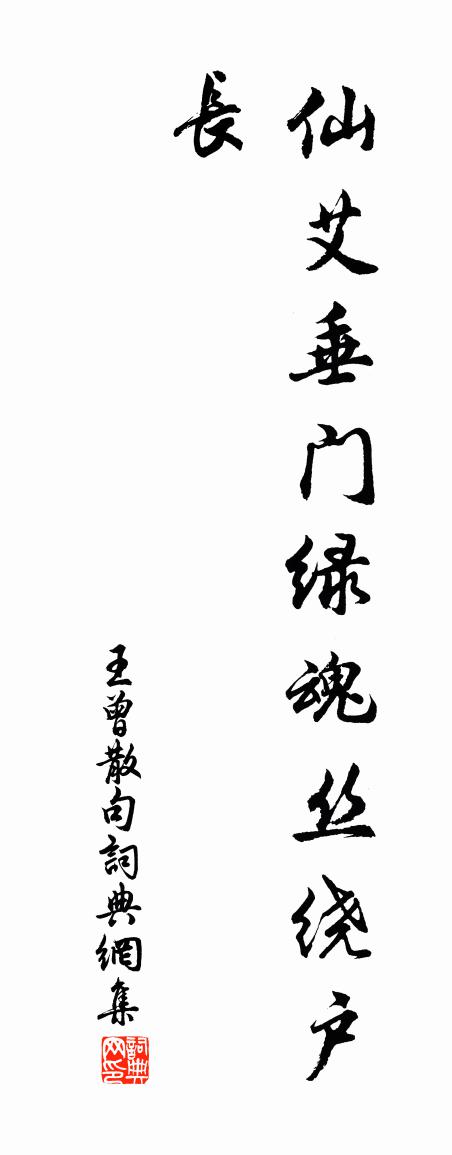 仙艾垂门绿魂丝绕户
長
王曾散句詞典網集
詞典网印